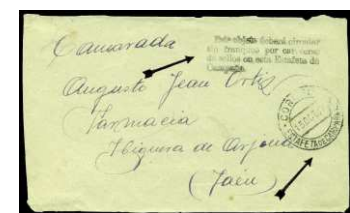 Camarada
Este objeto deberá circular
sin franqueo por carecerse
de sellos en esta Estafeta de
Campaña.
Augusto Jean Ortiz
Farmacia
Higuera de Arjona
(Jaén)
ESTAFETA DE CAMPAÑA